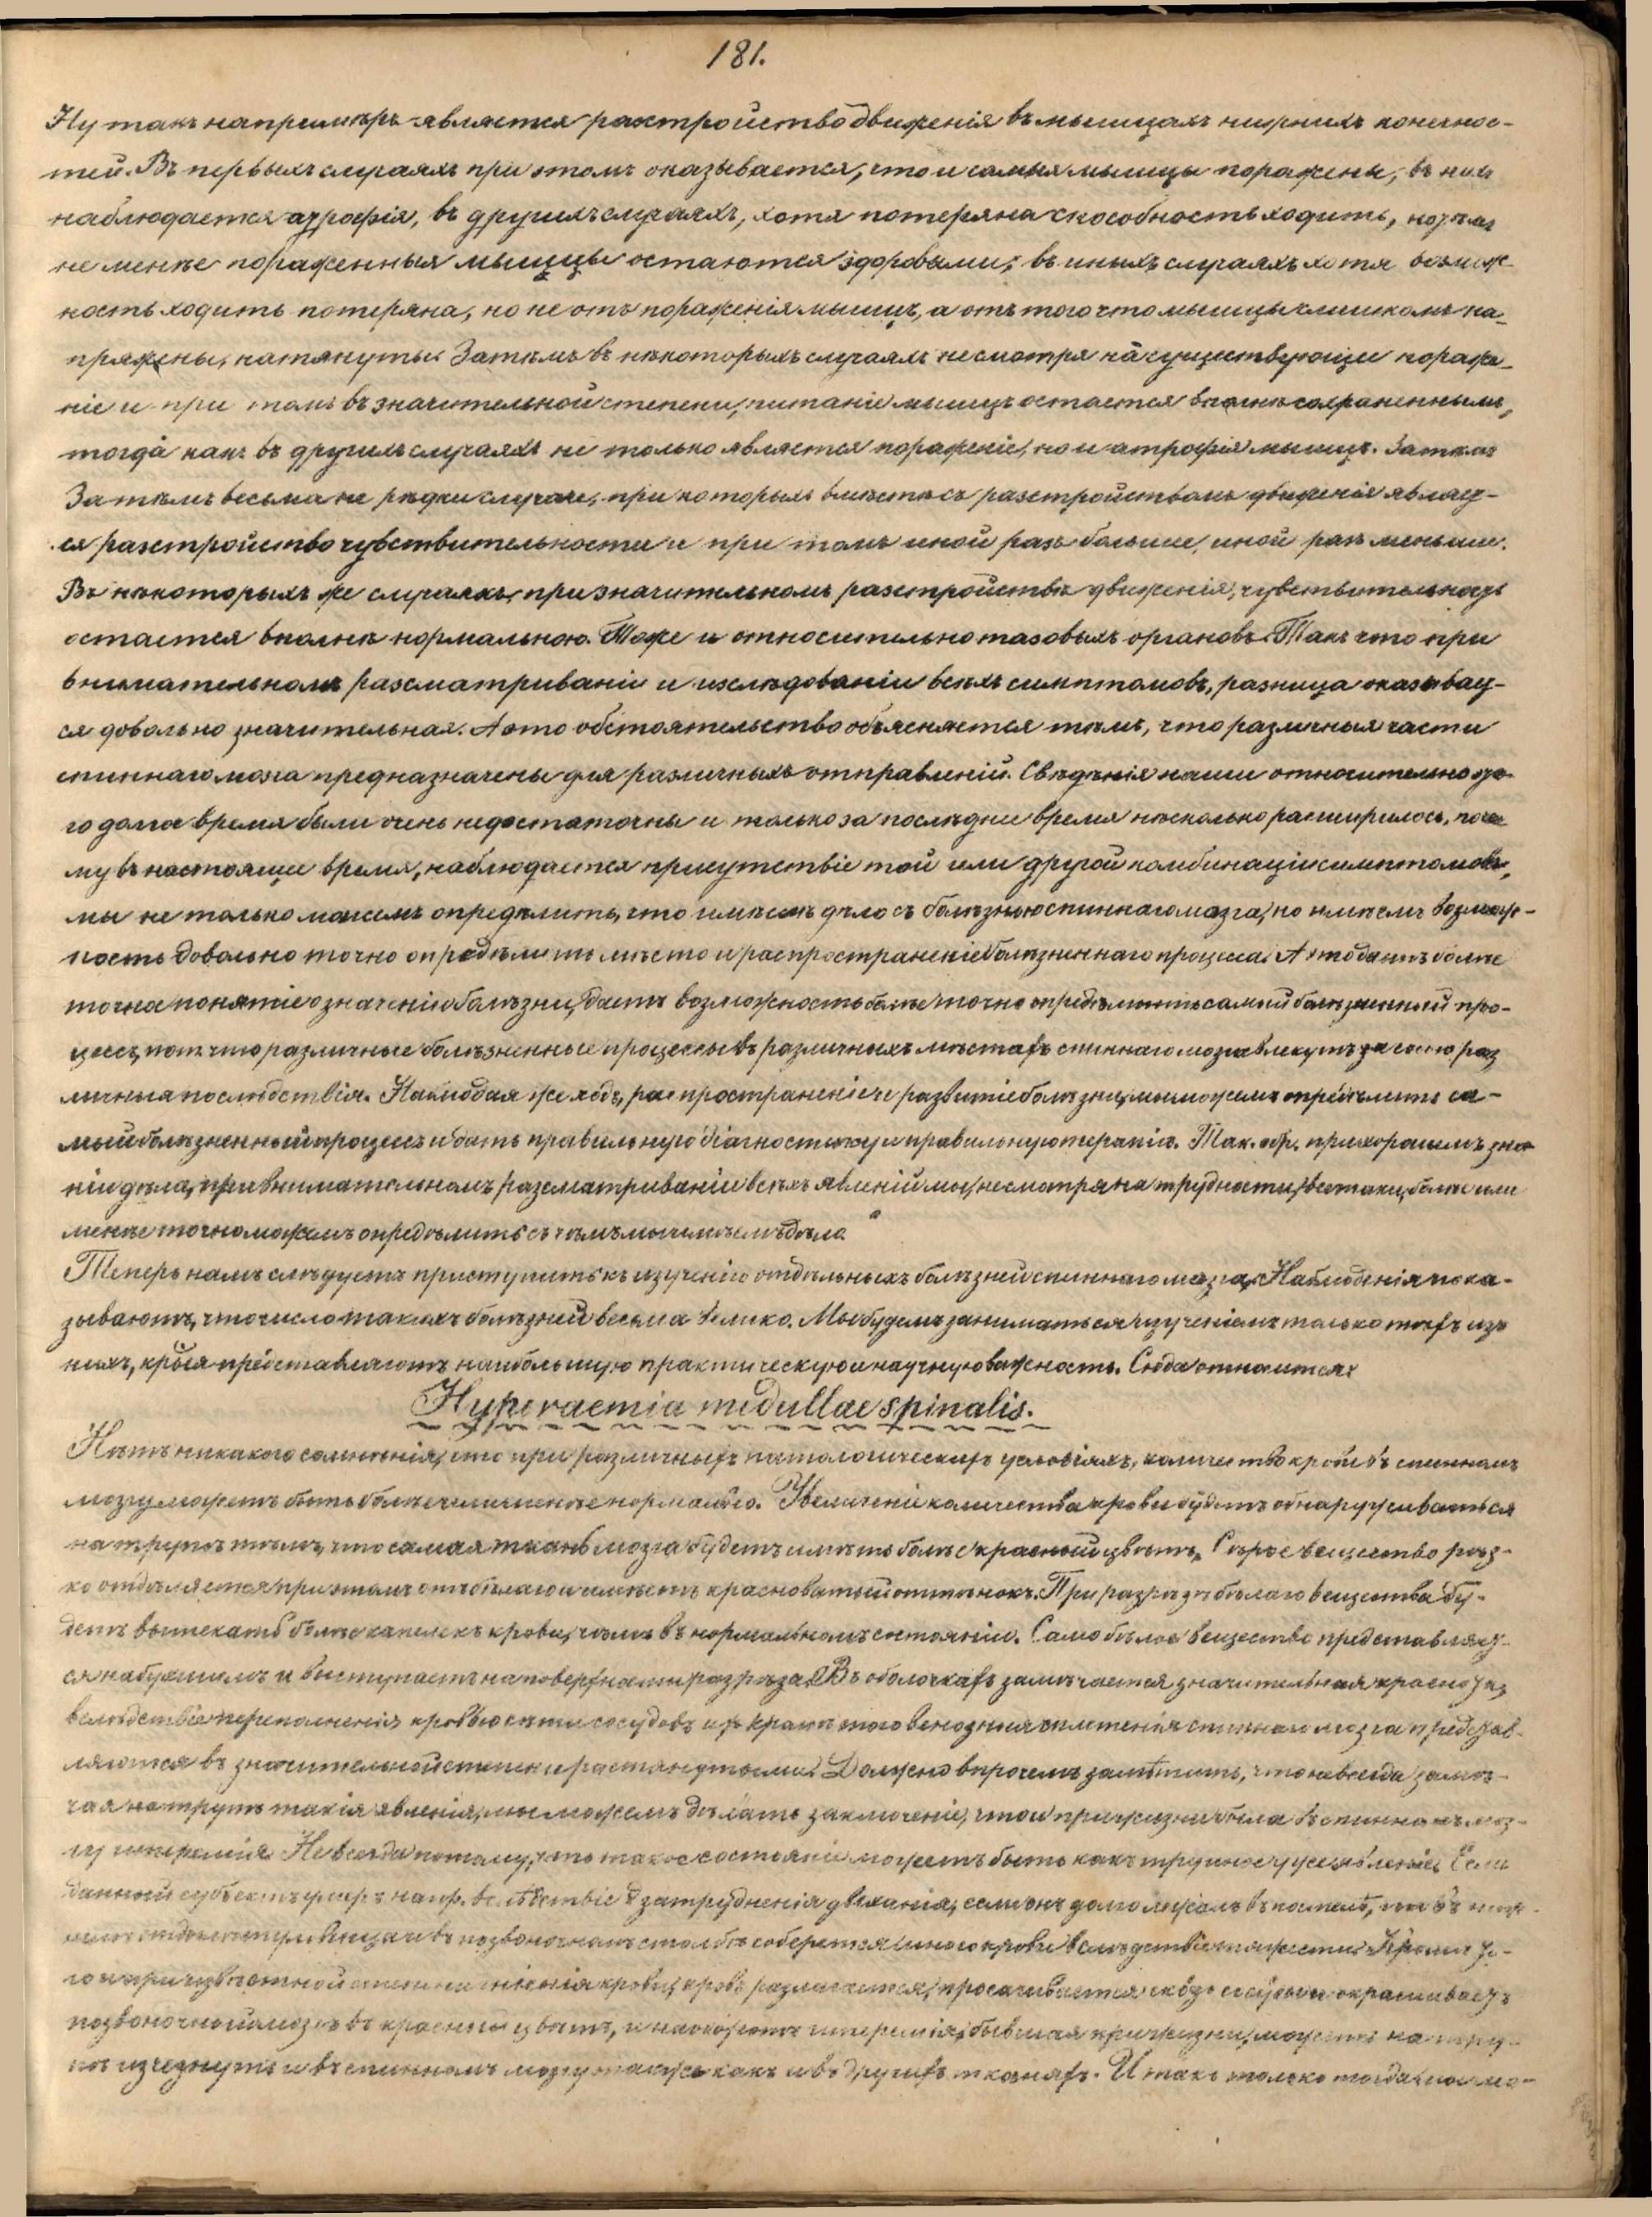 181.
Ну такъ напримѣръ является растройство движенія въ мышцахъ нижнихъ конечнос-
тей. Въ первыхъ случаяхъ при этомъ оказывается, что и самыя мышцы поражены, въ нихъ
наблюдается атрофія, въ другихъ случаяхъ, хотя потеряна способность ходить, но тѣмъ
не менѣе пораженныя мышцы остаются здоровыми; въ иныхъ случаяхъ хотя возмож-
ность ходить потеряна, но не отъ пораженія мышцъ, а отъ того что мышцы слишкомъ на-
пряжены, натянуты. Затѣмъ въ нѣкоторыхъ случаяхъ несмотря на существующіе пораже-
ніе и при томъ въ значительной степени, питаніе мышцъ остается вполнѣ сохраненнымъ,
тогда какъ въ другихъ случаяхъ не только является пораженіе, но и атрофія мышцъ. Затѣмъ
Затѣмъ весьма не рѣдки случаи, при которыхъ вмѣстѣ съ разстройствомъ движенія являет-
ся разстройство чувствительности и при томъ иной разъ больше, иной разъ меньше.
Въ нѣкоторыхъ же случаяхъ при значительномъ разстройствѣ движенія, чувствительность
остается вполнѣ нормальною. Тоже и относительно тазовыхъ органовъ. Такъ что при
внимательномъ разсматриваніи и изслѣдованіи всѣхъ симптомовъ, разница оказывает-
ся довольно значительная. А это обстоятельство объясняется тѣмъ, что различныя части
спиннаго мозга предназначены для различныхъ отправленій. Свѣдѣнія наши относительно это-
го долгое время были очень недостаточны и только за послѣднее время нѣсколько расширилось, поче
му въ настоящее время, наблюдается присутствіе той или другой комбинаціи симптомовъ,
мы не только можемъ опредѣлить, что имѣемъ дѣло съ болѣзнью спиннаго мозга, но имѣемъ возмож-
ность довольно точно опредѣлить мѣсто и распространеніе болѣзненнаго процесса. А это даетъ болѣе
точна понятіе о значеніи болѣзни, даетъ возможность болѣе точно опредѣлить самый болѣзненный про-
цессъ, пот. что различные болѣзненные процессы въ различныхъ мѣстахъ спиннаго мозга влекутъ за собою раз
личныя послѣдствія. Наблюдая же ходъ, распространеніе и развитіе болѣзни, мы можемъ опредѣлить са-
мый болѣзненный процессъ и дать правильную діагностику и правильную терапію. Так. обр. при хорошемъ зна-
ніи дѣла, при внимательномъ разсматриваніи всѣхъ явленій мы, несмотря на трудности, всетаки, болѣе или
менѣе точно можемъ опредѣлить съ чѣмъ мы имѣемъ дѣло.
Теперь намъ слѣдуетъ приступить къ изученію отдѣльныхъ болѣзней спиннаго мозга. Наблюденія пока-
зываютъ, что число такихъ болѣзней весьма велико. Мы будемъ заниматься изученіемъ только тѣхъ изъ
нихъ, крыя представляютъ наибольшую практическую и научную важность. Сюда относится:
Hyperaemia medullae spinalis.
Нѣтъ никакого сомнѣнія, что при различныхъ патологическихъ условіяхъ, количество крови въ спинномъ
мозгу можетъ быть болѣе или менѣе нормальнаго. Увеличеніе количества крови будетъ обнаруживаться
на трупѣ тѣмъ, что самая ткань мозга будетъ имѣть болѣе красный цвѣтъ. Сѣрое вещество рѣз-
ко отдѣляется при этомъ отъ бѣлаго и имѣетъ красноватый оттѣнокъ. При разрѣзѣ бѣлаго вещества бу-
детъ вытекать болѣе капелекъ крови, чѣмъ въ нормальномъ состояніи. Само бѣлое вещество представляет-
ся набухшимъ и выступаетъ на поверхности разрѣза. Въ оболочкахъ замѣчается значительная краснота,
вслѣдствіе переполненія кровью сѣти сосудовъ ихъ кромѣ того венозныя сплетенія спиннаго мозга представ-
ляются въ значительной степени растянутыми. Должно впрочемъ замѣтить, что не всегда замѣ-
чая на трупѣ такія явленія, мы можемъ дѣлать заключеніе, что и при жизни была въ спинномъ моз-
гу гиперемія. Не всегда потому, что такое состояніе можетъ быть какъ трупное уже явленіе. Если
данный субъектъ умеръ напр. вслѣдствіе затрудненія дыханія, если онъ долго лежалъ въ постелѣ, то въ ниж-
позвоночномъ столбѣ соберется много крови вслѣдствіе тяжести. Кромѣ то-
го и при извѣстной степени гніенія крови, кровь разлагается, просачивается сквозь сосуды и окрашиваетъ
позвоночный мозгъ въ красный цвѣтъ, и наоборотъ гиперемія, бывшая при жизни, можетъ на тру-
пѣ изчезнуть и въ спинномъ мозгу также какъ и въ другихъ тканяхъ. И такъ только тогда мы мо-